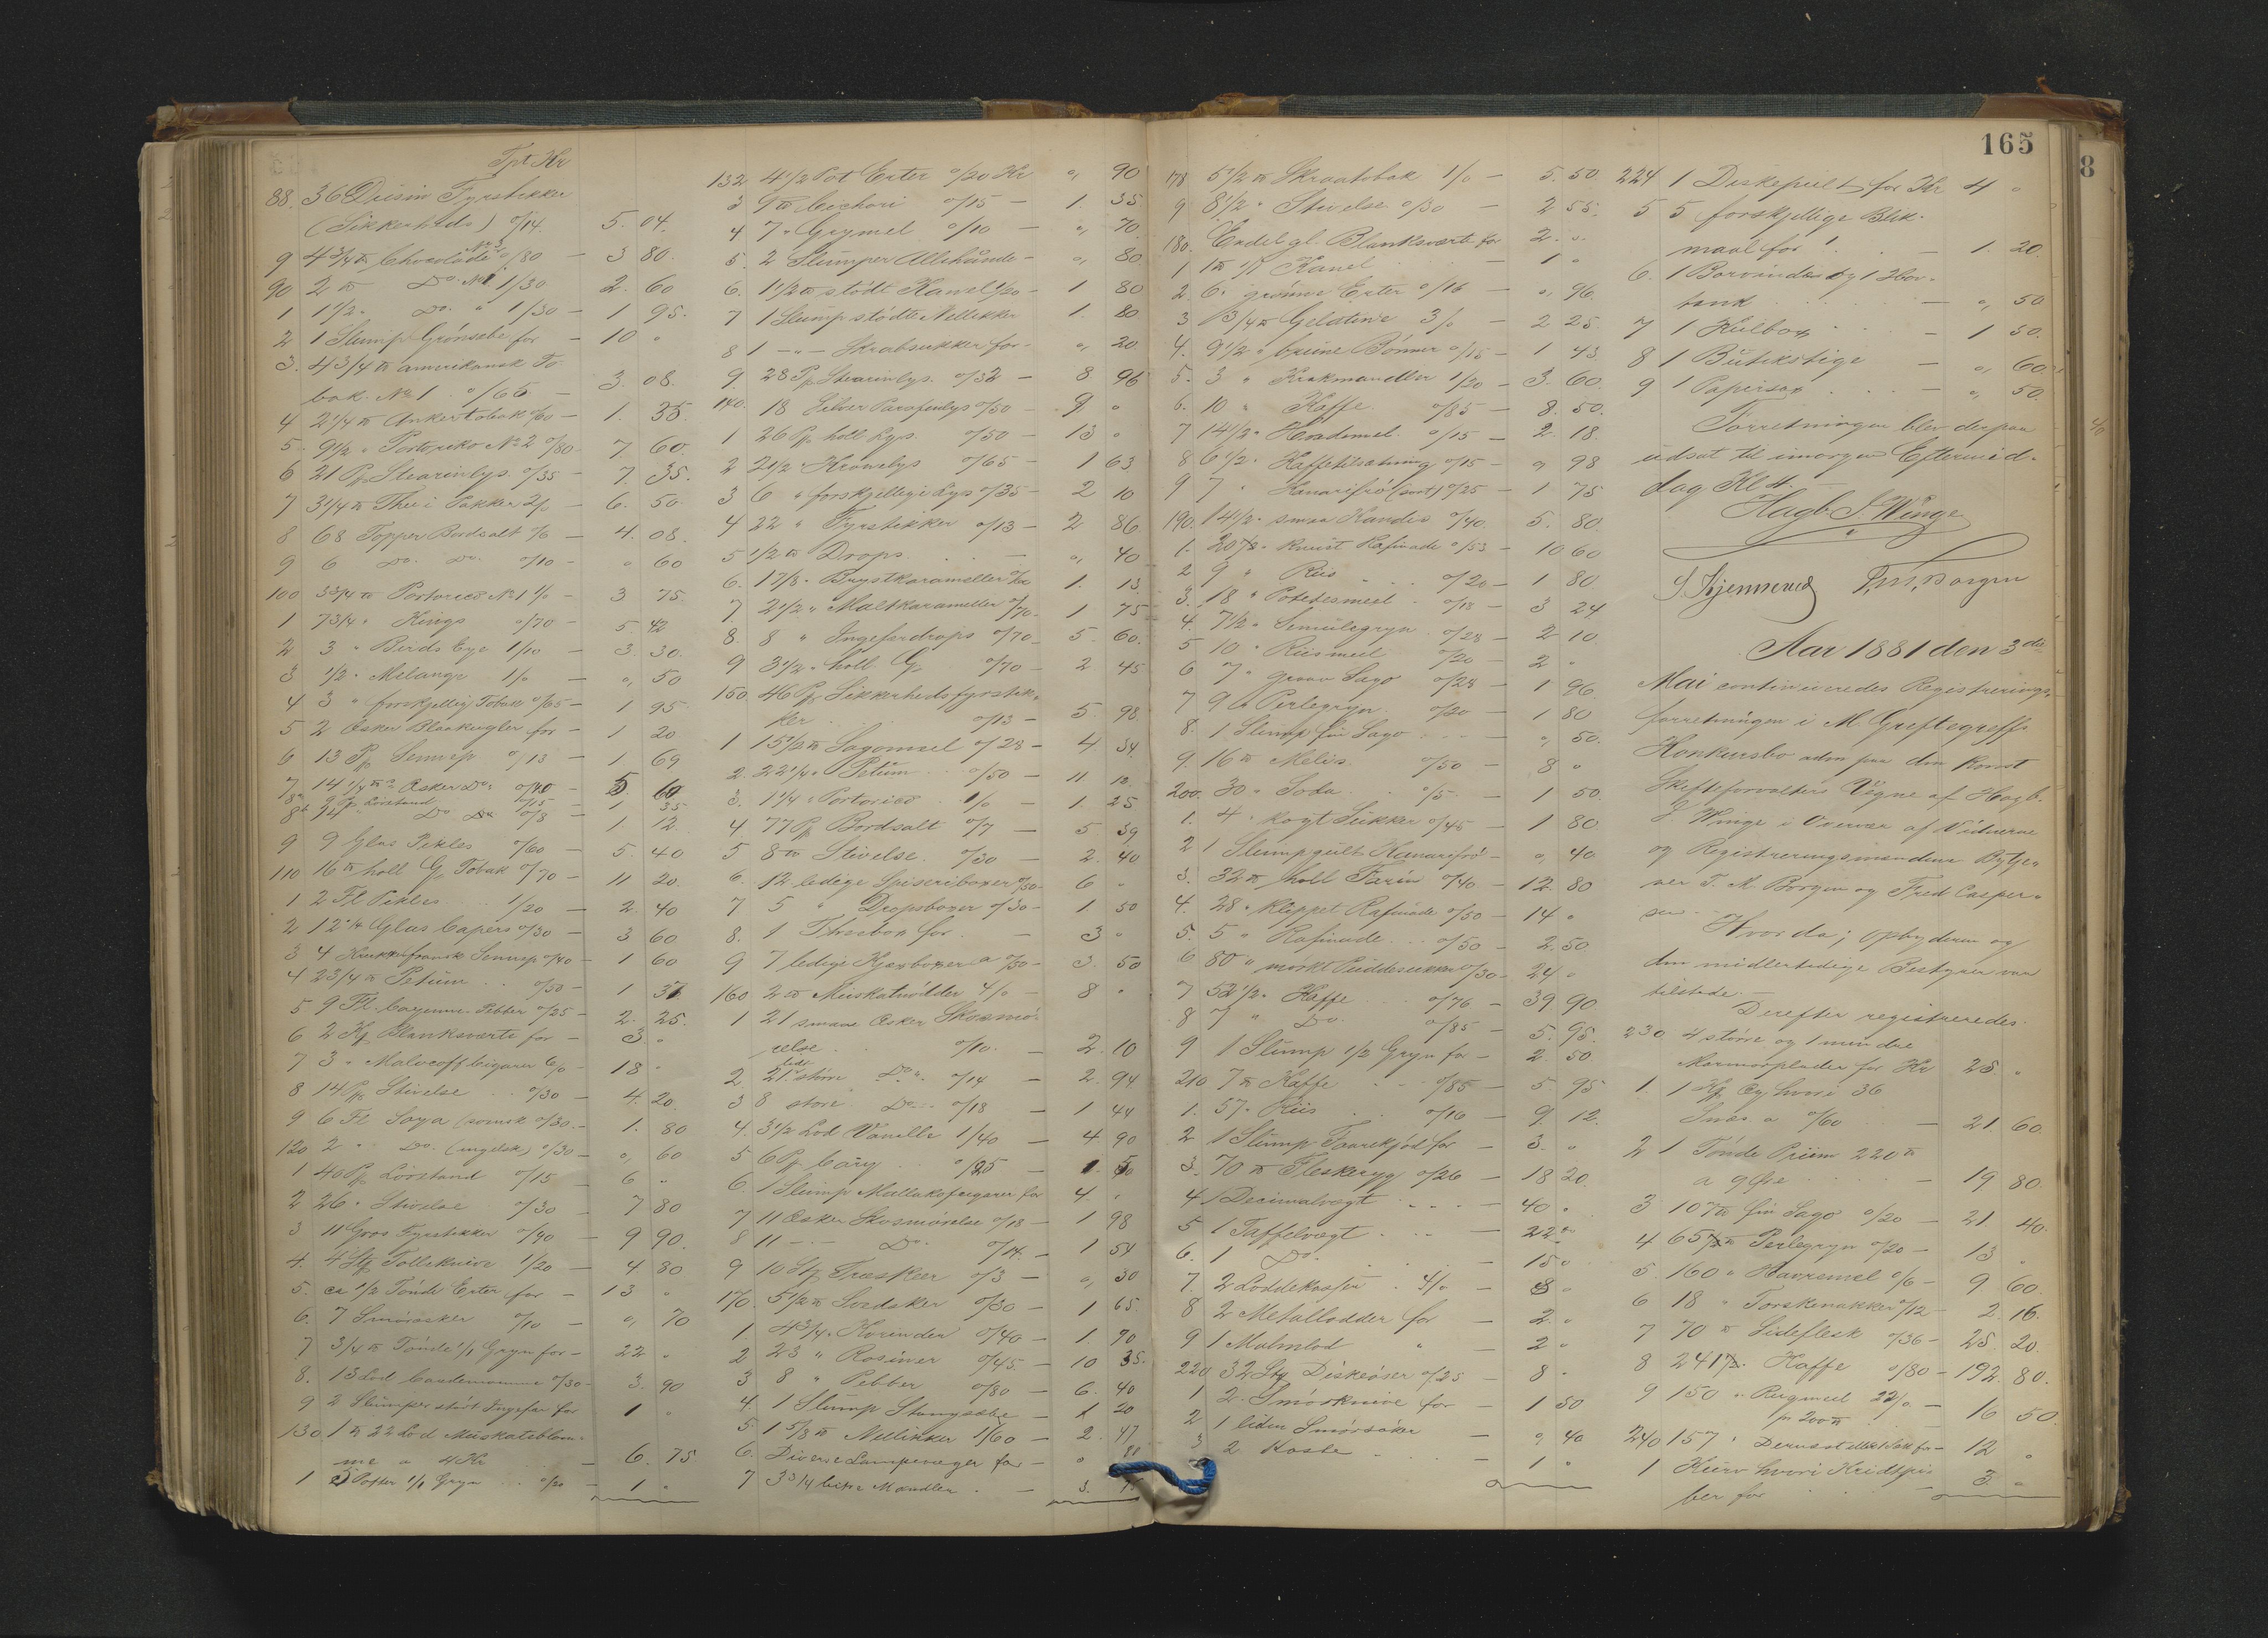 Tpt Kr
88. 36 Dusin Fyrstikker
(Sikkerheds) o/14. 5. 04.
9 4 3/4 ℔ Chocolade No 3 o/80 — 3 80.
90 2 ℔ Do. No 1 1/30 2. 60
1 1 1/2 " Do. " 1/30 — 1 95.
2 1 Slump Grönsæbe for — 10 "
3. 4 3/4 ℔ amerikansk To-
bak. No 1 o/65 — 3. 08.
4 2 1/4 ℔ Ankertobak o/60 — 1. 35
5. 9 1/2 " Portoriko No 2 o/80 7. 60.
6 21 Pk Stearinlys o/35 — 7. 35.
7 3 1/4 ℔ The i Pakker 2/" — 6. 50.
8 68 Topper Bordsalt o/6 — 4. 08.
9 6 Do. Do. o/10 — " 60
100 3 3/4 ℔ Portorico No 1 1/" — 3 75.
1 7 3/4 " Kings o/70 — 5. 42
2 3 " Birds Eye 1/10 — 3. 30.
3 1/2 " Melange 1/" — " 50
4 3 " forskjellig Tobak o/65 — 1 95
5 2 Æsker Blaakugler for — 1 20
6 13 Pk Sennep o/13 — 1 69
7 14 1/4 ℔ Æsker Do o/40 — 5. 60
8a 9 Pk Lövstand o/15 — 1 35
8b 14 " Do Do o/8 — 1. 12
9 9 Glas Pikles o/60 — 5. 40
110 16 ℔ holl G. Tobak o/70 — 11 20.
1 2 Fl Pikles 1/20 — 2. 40
2 12 1/4 Glas Capers o/30 — 3 60
3 4 Krukker fransk Sennep o/40 — 1 60
4 2 3/4 ℔ Petum o/50 — 1 37
5 9 Fl. Cayenne Pebber o/25 — 2. 25.
6 2 Kg Blanksværte for — 3. "
7 3 " Malacoff Cigarer 6/" — 18 "
8 14 Pk Stivelse o/30 — 4. 20.
9 6 Fl Soya (norsk o/30. — 1. 80
120 2 " Do. (engelsk) o/30 — " 60
1 40 Pk Lövstand o/15 — 6 "
2 26 " Stivelse o/30 — 7 80
3 11 Gros Fyrstikker o/90 — 9 90.
4. 4 Stk Tolleknive 1/20 — 4 80
5. ca 1/2 Tönde Erter for — 13 "
6. 7 Smöræsker o/10 — " 70
7 3/4 ℔ Tönde 1/1 Gryn for — 22 "
8. 13 Lod Cardemomme o/30 — 3. 90
9 2 Slumper stödt Ingefær for 1 "
130. 1 ℔ 22 Lod Muskateblom-
me a 4 Kr — 6. 75
1 5 Potter 1/1 Gryn o/20 — 1 "
132 4 1/2 Pot Erter o/20 Kr " 90
3 9 ℔ Cichori o/15 — 1. 35
4 7 " Grymel o/10 — " 70
5. 2 Slumper Allehånde — " 80
6. 1 1/2 ℔ stödt Kanel 1/20 — 1 80
7 1 Slump stödte Nellikker 1. 80
8 1 —"— Skrabsukker for — " 20
9. 28 Pk Stearinlys. o/32 — 8 96
140. 18 Esker Parafinlys o/50 — 9 "
1 26 Pk holl Lys. o/50 — 13 "
2 2 1/2 " Kronelys o/65 — 1 63
3 6 " forskjellige Lys o/35 — 2 10
4 22 " Fyrstikker o/13 — 2 86
5 1/2 ℔ Drops — " 40
6. 1 7/8 " Brystkarameller o/60 1. 13
7 2 1/2 " Maltkarameller o/70 — 1 75
8. 8 " Ingefærdrops o/70 — 5 60
9 3 1/2 " holl G. o/70 — 2 45
150. 46 Pk Sikkerhedsfyrstik-
ker o/13 — 5. 98
1 15 1/2 ℔ Sagomel o/28 — 4 34
2. 22 1/4 " Petum o/50 — 11 12.
3. 1 1/4 " Portorico 1/" — 1. 25
4 77 Pk Bordsalt o/7 — 5 39
5 8 ℔ Stivelse. o/30 — 2. 40
6. 12 ledige Spiseriboxer o/50 — 6 "
7 5 " Dropsboxer o/30 — 1. 50
8. 1 Thebox for — 3 "
9 7 ledige Kjæxboxer a o/50 — 3. 50
160 2 ℔ Muskatnödder 4/" — 8 "
1 21 smaae Æsker Skosmö-
relse o/10. — 2. 10
2. 21. lidt större Do. o/14 — 2. 94
3 8 store Do. o/18 — 1 44
4. 3 1/2 Lod Vanille 1/40 — 4 90
5 6 Pk. Cary o/25 — 1. 50
6. 1 Slump Mallakofcigarer for 4. "
7 11 Æsker Skosmörelse o/18 — 1 98
8 11 —"— Do. o/14 — 1 54
9 10 Stk Træskeer o/3 — " 30
170. 5 1/2 ℔ Svedsker o/30 — 1 65.
1. 4 3/4 " Korinder o/40 — 1. 90
2 23 " Rosiner o/45 — 10 35.
3 8 " Pebber o/80 — 6. 40
4. 1 Slump Stangsæbe — 1 20
5. 1 5/8 ℔ Nellikker 1/60 — 2. 47
6. Diverse Lampevæger for — " 81
7 3 3/4 bitre Mandler — 3.
165
178 5 1/2 ℔ Skraatobak 1/" — 5. 50.
9 8 1/2 " Stivelse o/30 — 2 55.
180. Endel gl. Blanksværte for 2. "
1 1 ℔ 1/1 Kanel — 1 "
2. 6 " grönne Erter o/16 — " 96.
3 3/4 ℔ Gelatine 3/" — 2 25.
4. 9 1/2 " brune Bönner o/15 — 1 43
5. 3 " Krakmandler 1/20 — 3. 60.
6. 10 " Kaffe o/85 — 8. 50.
7 14 1/2 " Havremel. o/15 — 2. 18.
8 6 1/2 " Kaffetilsætning o/15 — " 98
9 7 " Kanarifrö (sort) o/25 — 1 75
190. 14 1/2 " smaa Kandis o/40. 5. 80.
1. 20 7/8 " knust Rafinade o/53 — 10 60
2 9 " Riis o/20 — 1 80
3. 18 " Potetesmeel o/18 — 3 24
4. 7 1/2 " Semulegryn o/28 — 2 10
5 10 " Riismeel o/20 — 2 "
6 7 " graae Sago o/28 — 1 96.
7 9 " Perlegryn o/20 — 1 80
8. 1 Slump fin Sago — " 50.
9. 16 ℔ Melis o/50 — 8 "
200. 30 " Soda o/5 — 1 50.
1. 4 " kogt Sukker o/45 — 1 80
2 1 Slump gult Kanarefrö — " 40.
3. 32 ℔ holl Farin o/40 — 12. 80
4. 28 " kleppet Rafinade o/50 — 14 "
5. 5 " Rafinade o/50 — 2. 50.
6 80 " mörkt Puddesukker o/30 — 24 "
7 52 1/2 " Kaffe o/76 — 39 90
8 7 " Do. o/85 — 5. 95.
9 1 Slump 1/2 Gryn for — 2. 50.
210 7 ℔ Kaffe o/85 — 5. 95
1. 57 " Riis o/16 — 9. 12.
2 1 Slump Faarekjöd for — 3. "
3. 70 ℔ Fleskeryg o/26 — 18 20.
4 1 Decimalvægt — 40 "
5 1 Taffelvægt — 22 "
6. 1 Do. — 15 "
7. 2 Loddekasser 4/" — 8 "
8 2 Metallodder for — 2. "
9 1 Malmlod " — 2 "
220 32 Stk Diskeöser o/25 — 8 "
1 2 Smörknive for — 1 50
2 1 liden Smörsöker — " 40
3 2 Koste — 1 "
224 1 Diskepult for Kr 4 "
5 5 forskjellige Blik-
maal for — 1. 20.
6. 1 Borvinde og 1 Hov-
tand — " 50
7 1 Kulbox — 1 50.
8 1 Butikstige — " 60.
9 1 Papirsax — " 50.
Forretningen blev derpaa
udsat til imorgen Eftermid-
dag Kl 4.
Hagb. J. Winge
S. Kjennerud T. M. Borgen
Aar 1881 den 3die
Mai continueredes Registrerings-
forretningen i M. Greftegreffs
Konkursbo adm paa den konst
Skifteforvalters Vegne af Hagb.
J. Winge i Overvær af Vidnerne
og Registreringsmændene Bytje-
ner T. M. Borgen og Fred Casper-
sen.
Hvorda; Opbyderen og
den midlertidige Bestyrer var
tilstede. —
Derefter registreredes.
230 4 större og 1 mindre
Marmorplader for Kr 25 "
1. 1 Kg Eg hvori 36
Snes a o/60 — 21. 60.
2 1 Tönde Priim 220 ℔
a 9 Öre — 19 80.
3 107 ℔ fin Sago o/20 — 21. 40.
4 65 ℔ Perlegryn o/20 — 13 "
5. 160 " Havremel o/6 — 9 60.
6 18 " Torskenakker o/12 — 2. 16.
7 70 ℔ Sideflesk o/36 — 25. 20.
8 241 " Kaffe o/80 — 192. 80.
9 150 " Rugmeel 22/" — 16 50.
pr 200 ℔
240 157 " for — 12 "
1 Kurv hvori Kridtpi-
ber for — 3. "
8